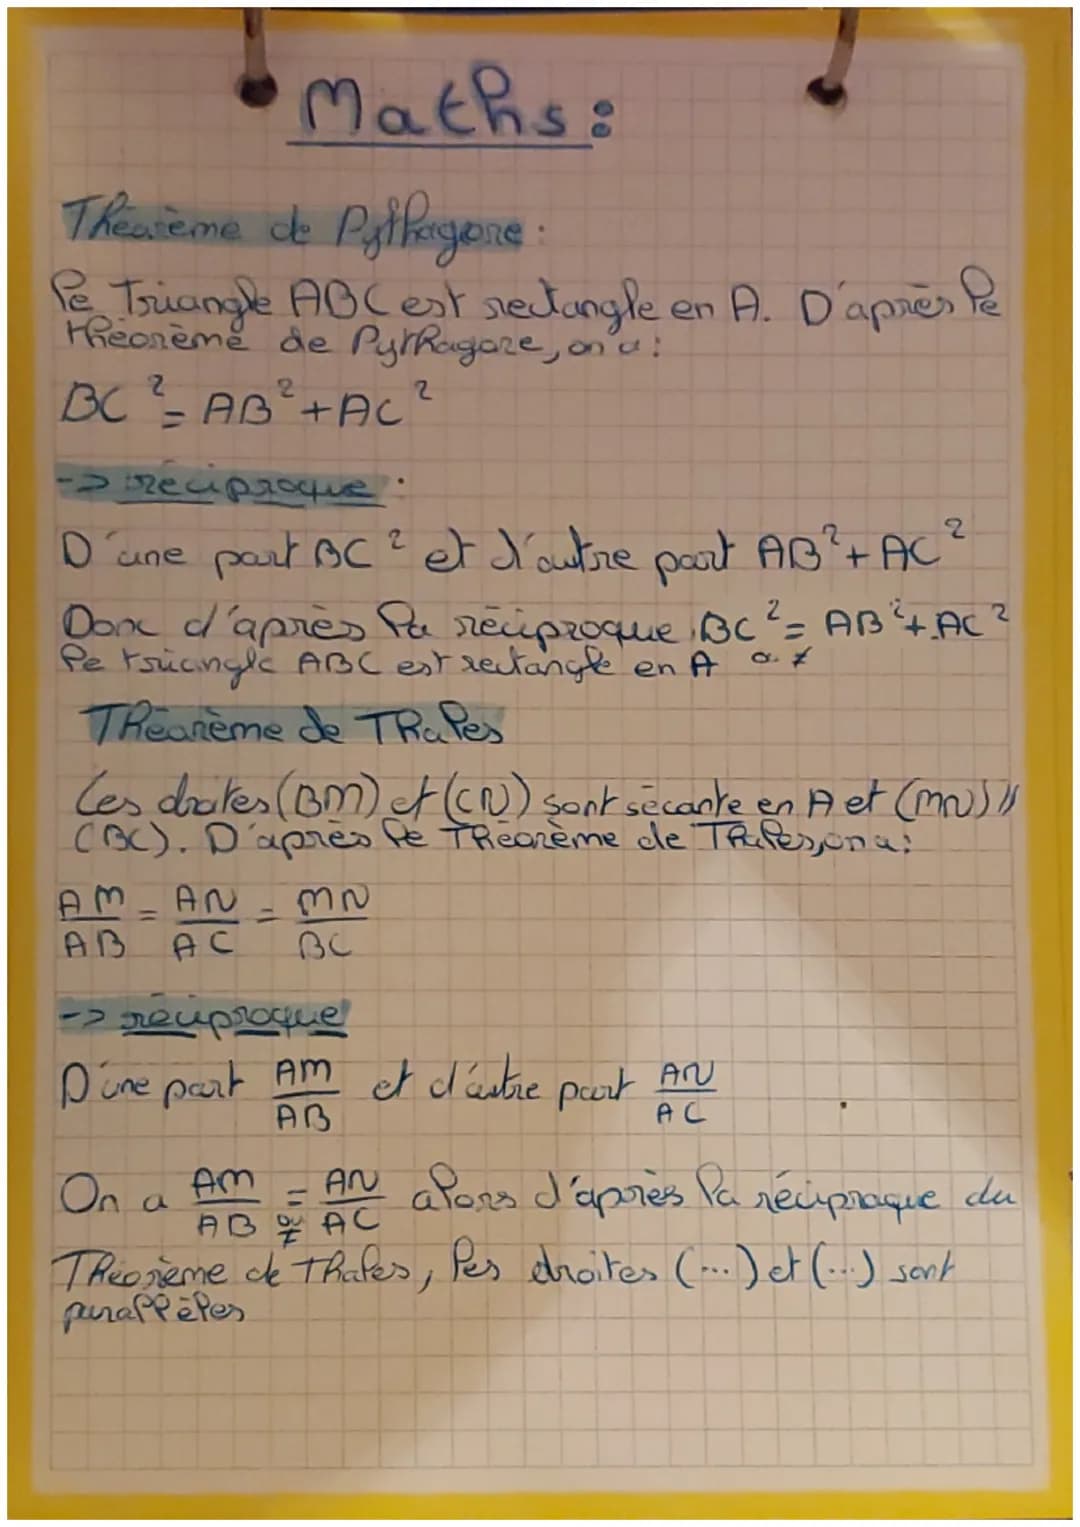 Maths :
Théorème de Pythagore :
le Triangle ABC est rectangle en A. D'après le
théorème de Pythagore, on a :
BC² = AB² + AC²
-> réciproque :
D'une part BC² et d'autre part AB² + AC²
Donc d'après la réciproque BC² = AB² + AC²
le triangle ABC est rectangle en A ou ≠
Théorème de Thales
Les droites (BM) et (CN) sont sécante en A et (MN) //
(BC). D'après le Théorème de Thales, on a :
AM/AB = AN/AC = MN/BC
-> réciproque
D'une part AM/AB et d'autre part AN/AC
On a AM/AB = ou ≠ AN/AC alors d'après la réciproque du
Théorème de Thales, les droites (...) et (...) sont
parallèles